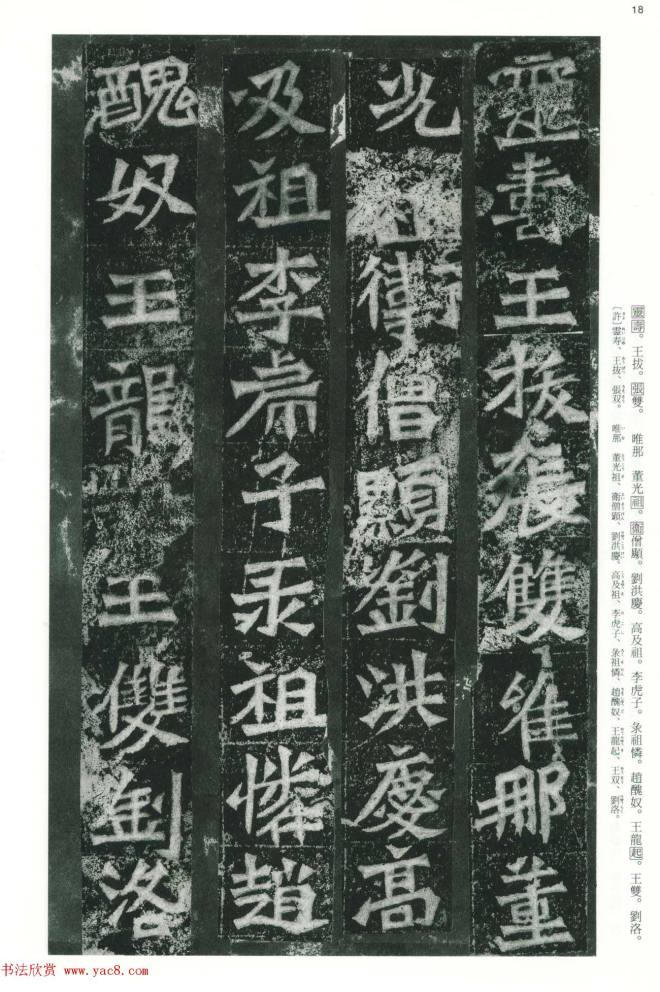 18
靈壽王拔張雙唯那董
光祖衛僧顯劉洪慶高
及祖李虎子祖憐趙
醜奴王龍王雙劉洛
靈壽。王拔。張雙。 唯那 董光祖。衛僧顯。劉洪慶。高及祖。李虎子。祖憐。趙醜奴。王龍起。王雙。劉洛。
〔許〕霊寿、王抜、張双。 唯那 董光祖、衛僧顕、劉洪慶、高及祖、李虎子、祖憐、趙醜奴、王龍起、王双、劉洛。
书法欣赏 www.yac8.com